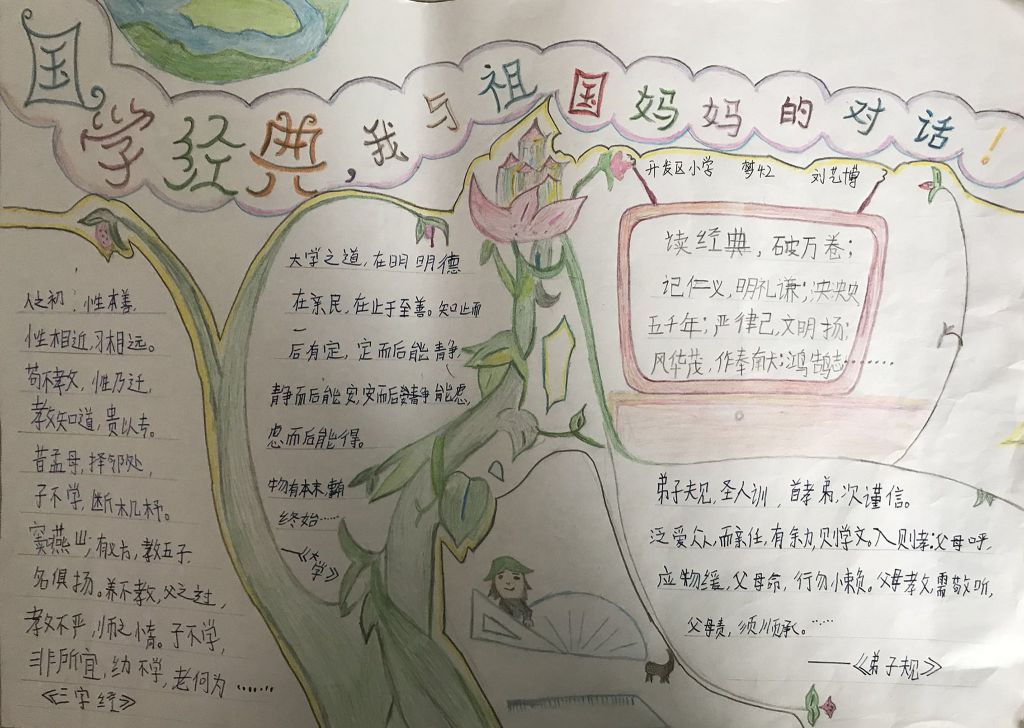 国学经典，我与祖国妈妈的对话！
开发区小学 梦42 刘艺博
人之初，性本善，
性相近，习相远。
苟不教，性乃迁，
教知道，贵以专。
昔孟母，择邻处，
子不学，断机杼。
窦燕山，有义方，教五子，
名俱扬。养不教，父之过，
教不严，师之惰。子不学，
非所宜，幼不学，老何为……
《三字经》
大学之道，在明明德
在亲民，在止于至善。知止而
后有定，定而后能静，
静而后能安，安而后能虑，
虑而后能得。
物有本末，事有
终始……
——《大学》
读经典，破万卷；
记仁义，明礼谦；泱泱
五千年；严律己，文明扬；
风华茂，作奉献；鸿鹄志……
弟子规，圣人训，首孝弟，次谨信。
泛爱众，而亲仁，有余力，则学文。入则孝：父母呼，
应勿缓，父母命，行勿懒。父母教，需敬听，
父母责，须顺承。……
——《弟子规》